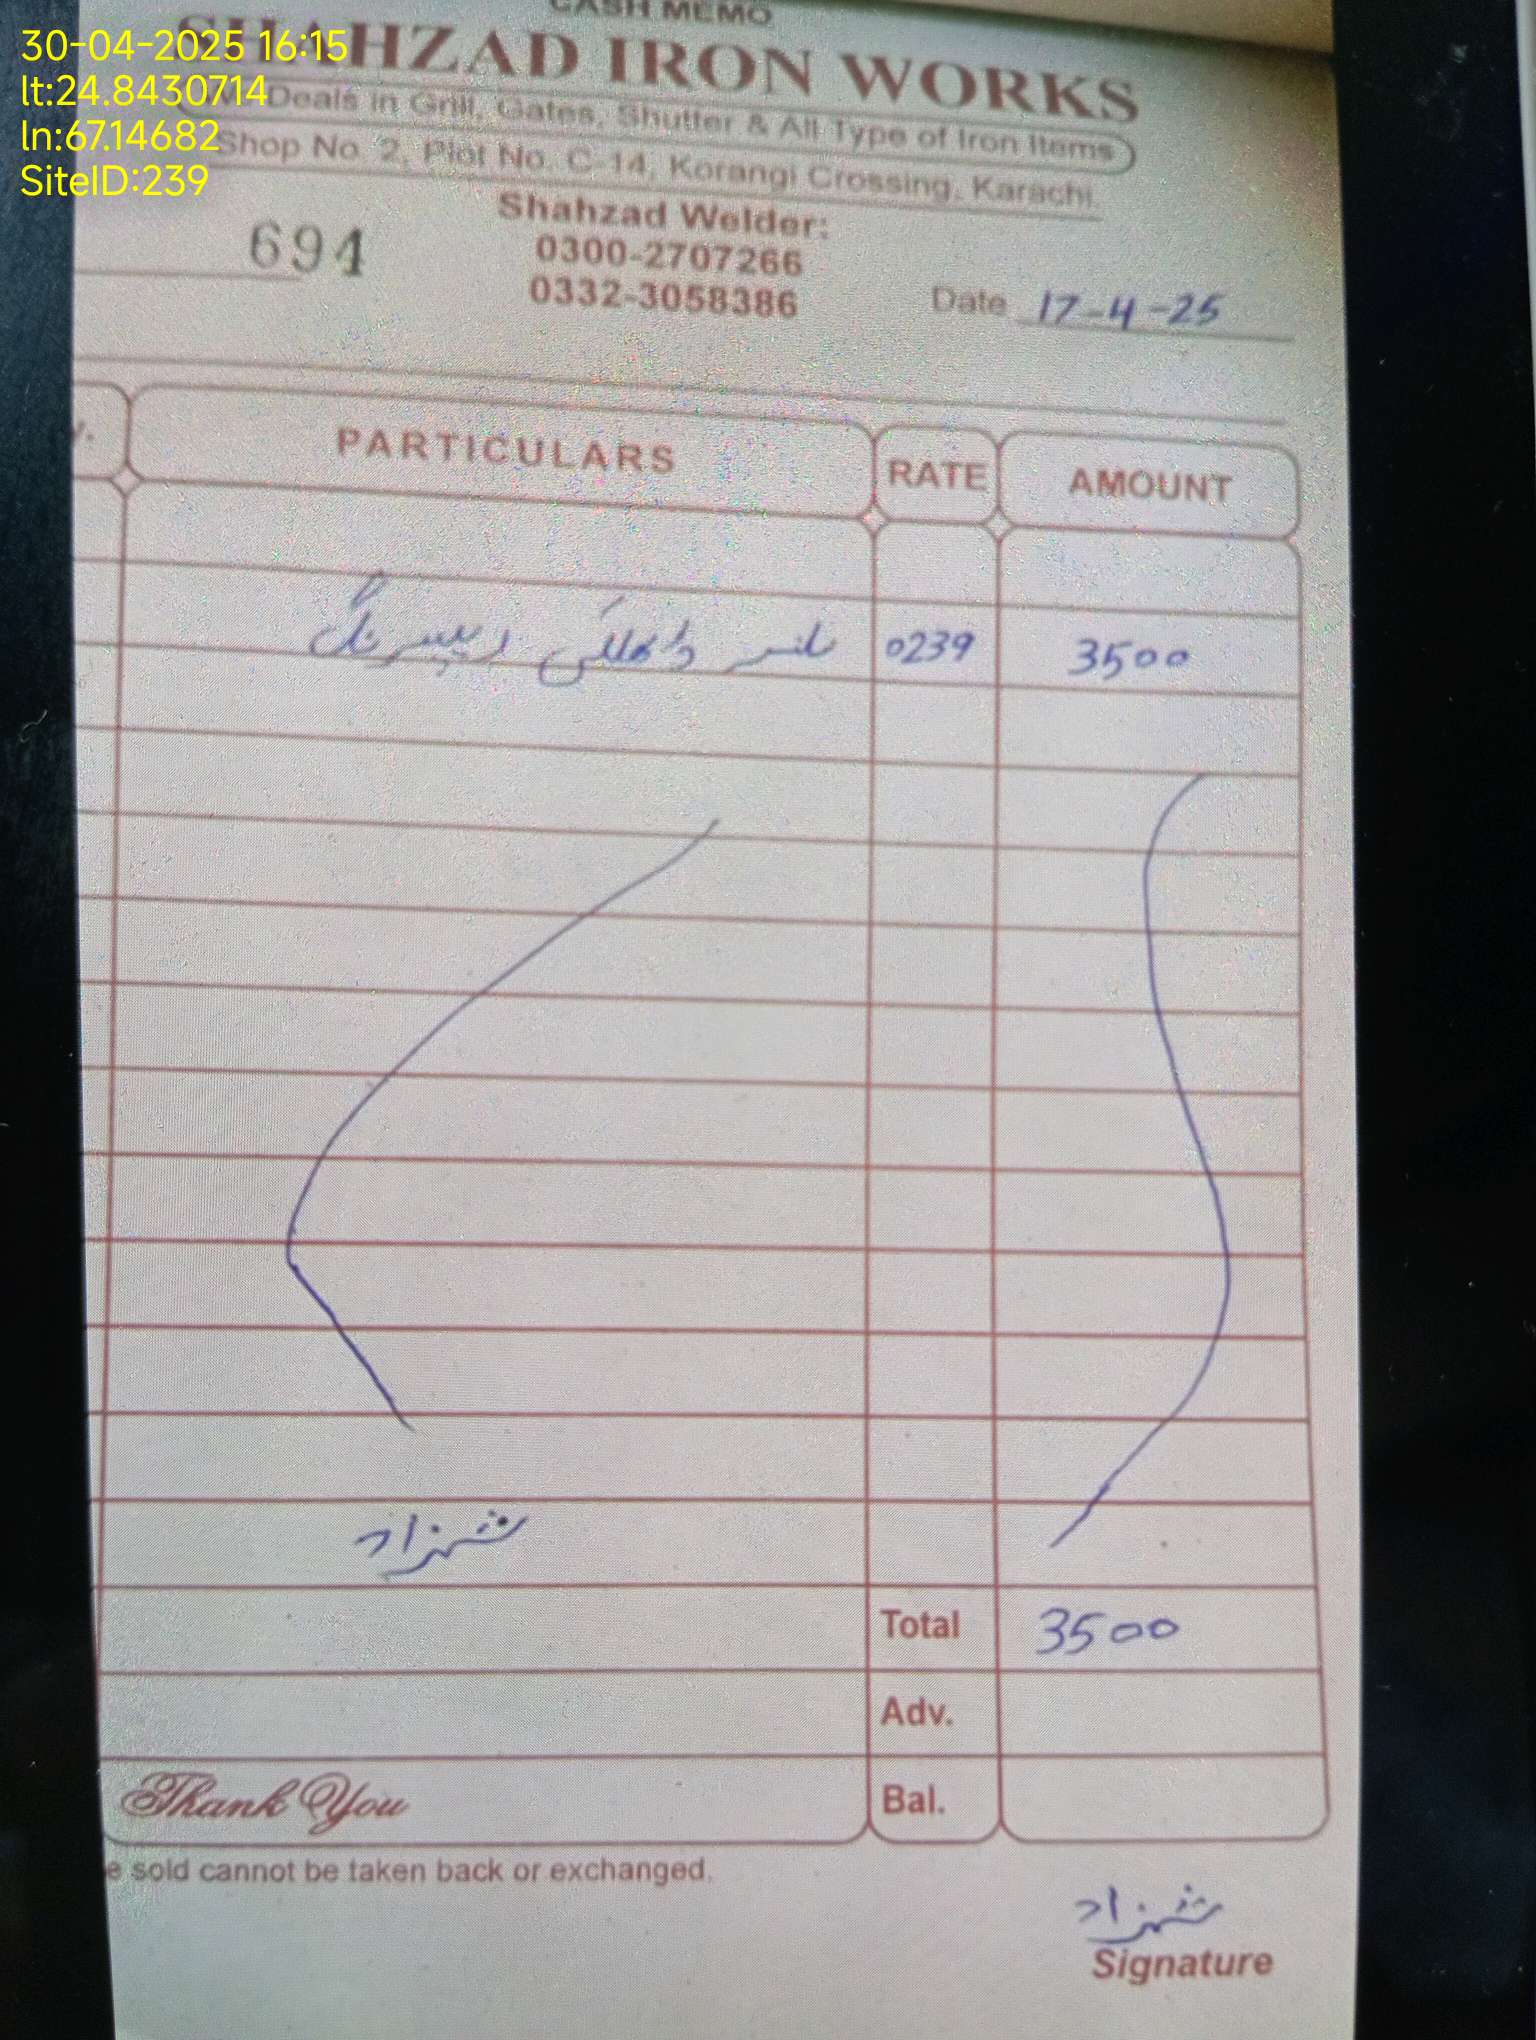 30-04-2025 16:15
lt:24.8430714
ln:67.14682
SiteID:239
CASH MEMO
SHAHZAD IRON WORKS
Deals in Grill, Gates, Shutter & All Type of Iron Items
Shop No. 2, Plot No. C-14, Korangi Crossing, Karachi.
Shahzad Welder:
0300-2707266
0332-3058386
694
Date 17-4-25
PARTICULARS RATE AMOUNT
ریپیرنگ 0239 3500
شہزاد
Total 3500
Adv.
Thank You Bal.
e sold cannot be taken back or exchanged.
شہزاد
Signature